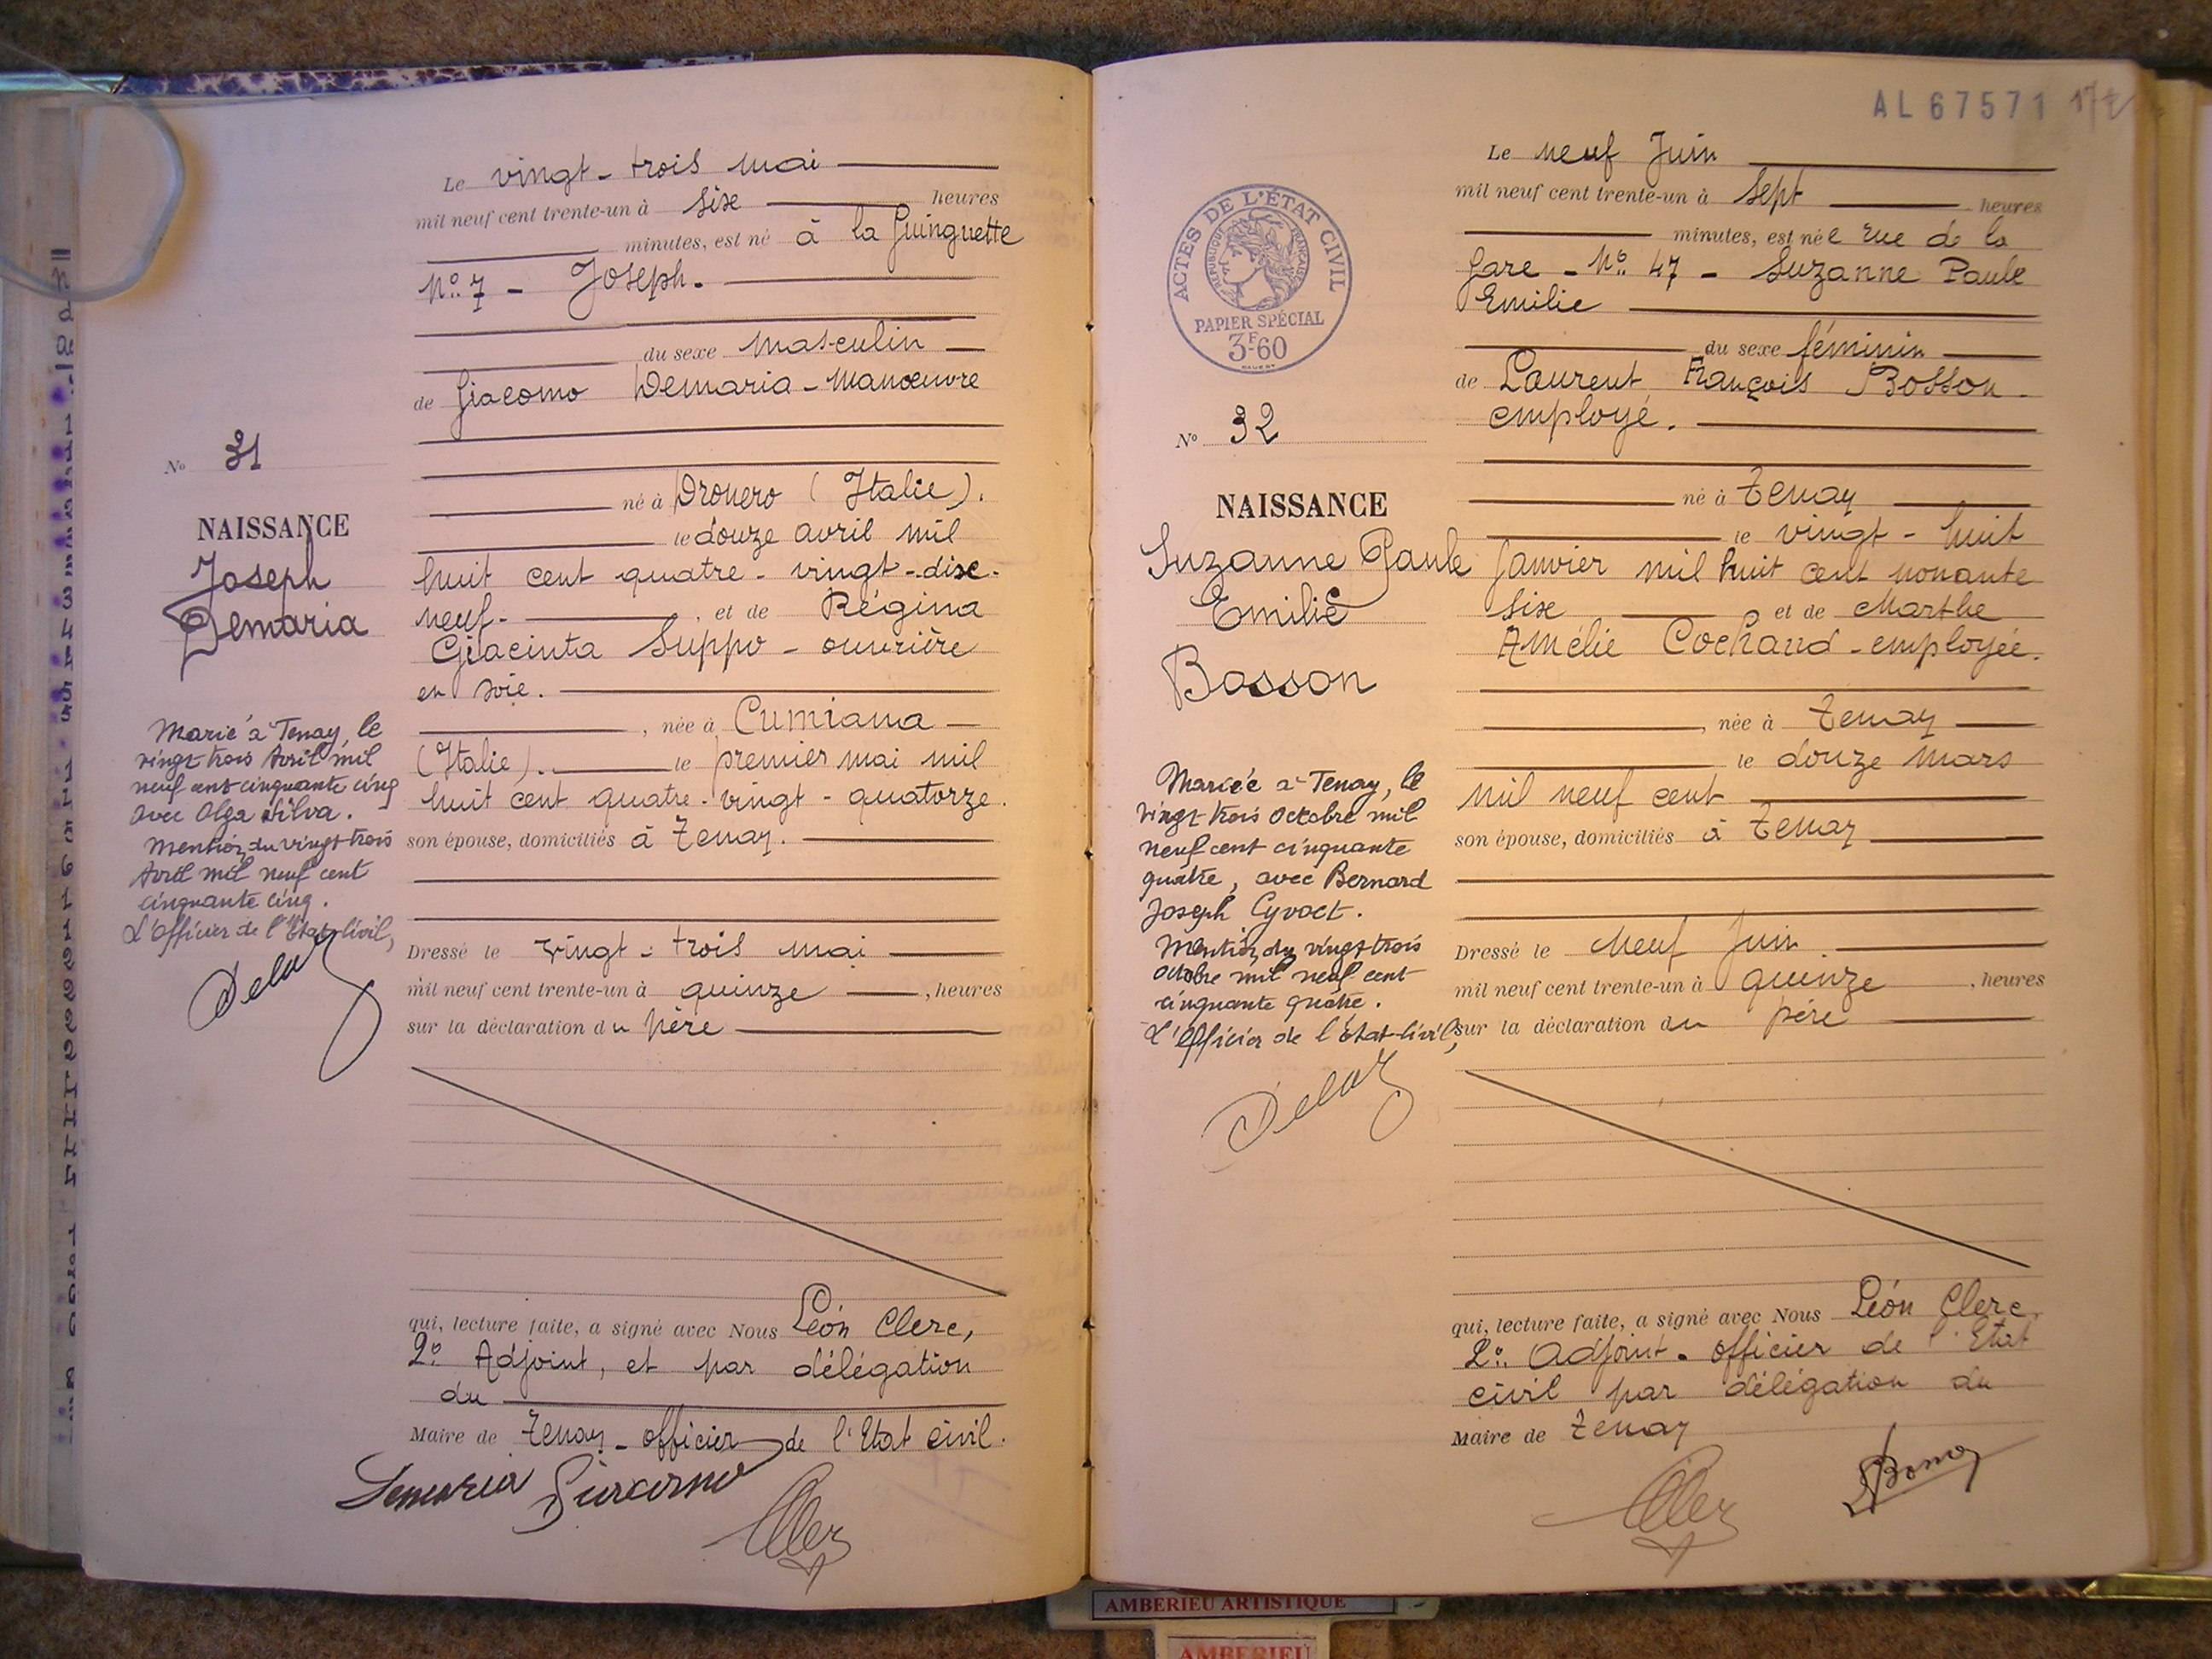 Le vingt-trois mai
mil neuf cent trente-un à sixe heures
minutes, est né à la Guinguette
N°. 7 - Joseph.
du sexe masculin
de Giacomo Demaria - manœuvre
né à Dronero (Italie).
le douze avril mil
huit cent quatre-vingt-dixe-
neuf- , et de Régina
Giacinta Suppo - ouvrière
en soie.
, née à Cumiana
(Italie). le premier mai mil
huit cent quatre-vingt-quatorze.
son épouse, domiciliés à Tenay.
Dressé le vingt-trois mai
mil neuf cent trente-un à quinze , heures
sur la déclaration du père
qui, lecture faite, a signé avec Nous Léon Clerc,
2°. Adjoint, et par délégation
du
Maire de Tenay - officier de l'Etat civil.
Demaria Giacomo
N° 31
NAISSANCE
Joseph
Demaria
Marié à Tenay, le
vingt trois Avril mil
neuf cent cinquante cinq
avec Olga Silva.
Mention du vingt trois
Avril mil neuf cent
cinquante cinq.
L'Officier de l'Etat-Civil,
AL 67571
Le neuf Juin
mil neuf cent trente-un à sept heures
minutes, est née rue de la
Gare - N°. 47 - Suzanne Paule
Emilie
du sexe féminin
de Laurent François Bosson -
employé.
né à Tenay
le vingt-huit
Janvier mil huit cent nonante
sixe et de Marthe
Amélie Cochaud - employée.
, née à Tenay
le douze mars
mil neuf cent
son épouse, domiciliés à Tenay
Dressé le Neuf Juin
mil neuf cent trente-un à quinze , heures
sur la déclaration du père
qui, lecture faite, a signé avec Nous Léon Clerc,
2°. Adjoint - officier de l'Etat
civil par délégation du
Maire de Tenay
ACTES DE L'ÉTAT CIVIL
RÉPUBLIQUE FRANÇAISE
PAPIER SPÉCIAL
3F60
N° 32
NAISSANCE
Suzanne Paule
Emilie
Bosson
Mariée à Tenay, le
vingt trois Octobre mil
neuf cent cinquante
quatre, avec Bernard
Joseph Cyvoct.
Mention du vingt trois
octobre mil neuf cent
cinquante quatre.
L'Officier de l'Etat-Civil,
AMBERIEU ARTISTIQUE
AMBERIEU